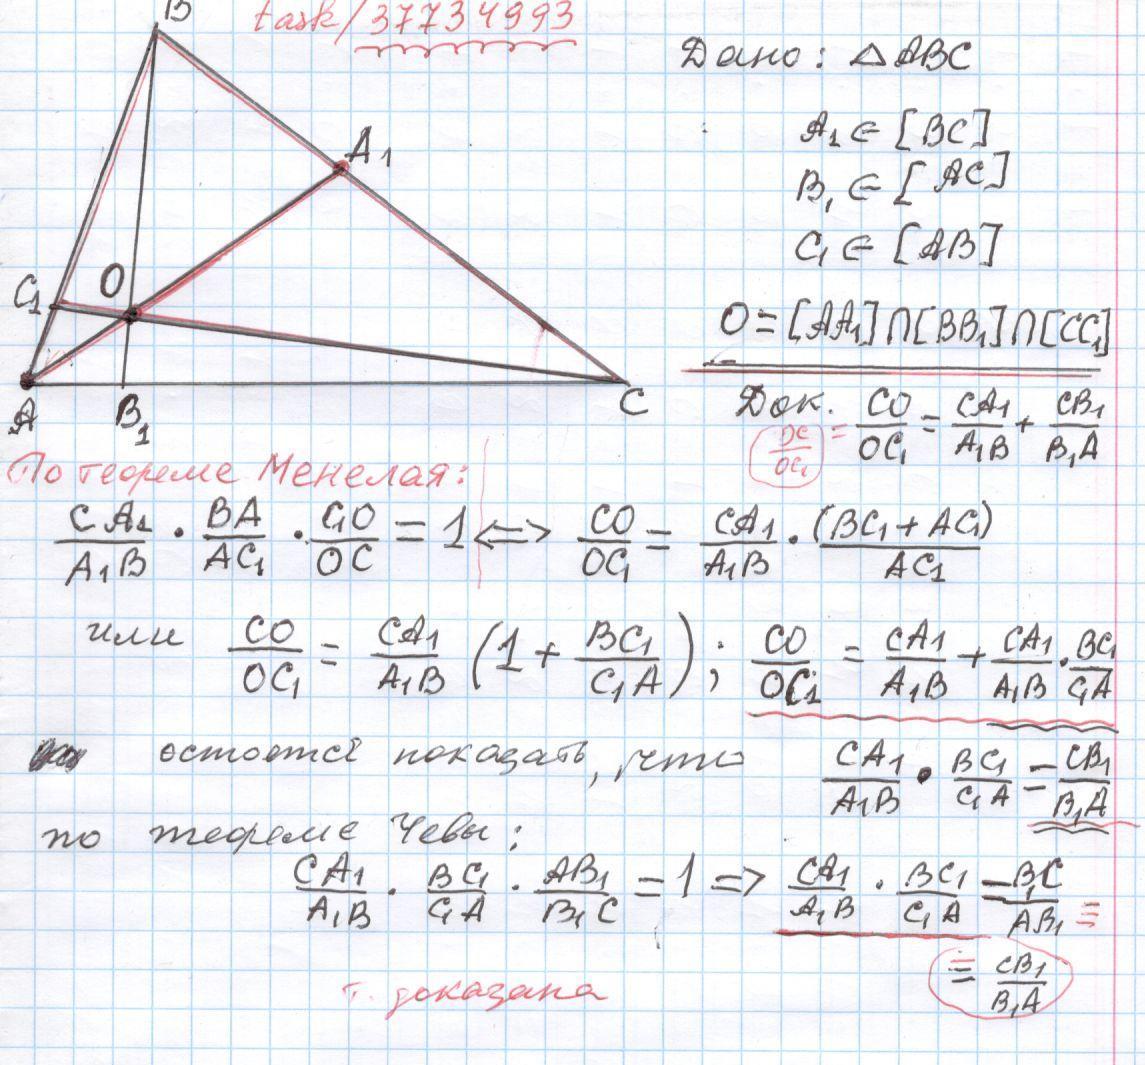 task/37734993
B
A₁
C₁
O
A
B₁
C
Дано: △ABC
A₁ ∈ [BC]
B₁ ∈ [AC]
C₁ ∈ [AB]
O = [AA₁] ∩ [BB₁] ∩ [CC₁]
Док. OC/OC₁ = CO/OC₁ = CA₁/A₁B + CB₁/B₁A
По теореме Менелая:
CA₁/A₁B · BA/AC₁ · C₁O/OC = 1 <=> CO/OC₁ = CA₁/A₁B · (BC₁ + AC₁)/AC₁
или CO/OC₁ = CA₁/A₁B (1 + BC₁/C₁A); CO/OC₁ = CA₁/A₁B + CA₁/A₁B · BC₁/C₁A
остоется показать, что CA₁/A₁B · BC₁/C₁A = CB₁/B₁A
по теореме Чевы:
CA₁/A₁B · BC₁/C₁A · AB₁/B₁C = 1 => CA₁/A₁B · BC₁/C₁A = B₁C/AB₁ =
= CB₁/B₁A
т. доказана